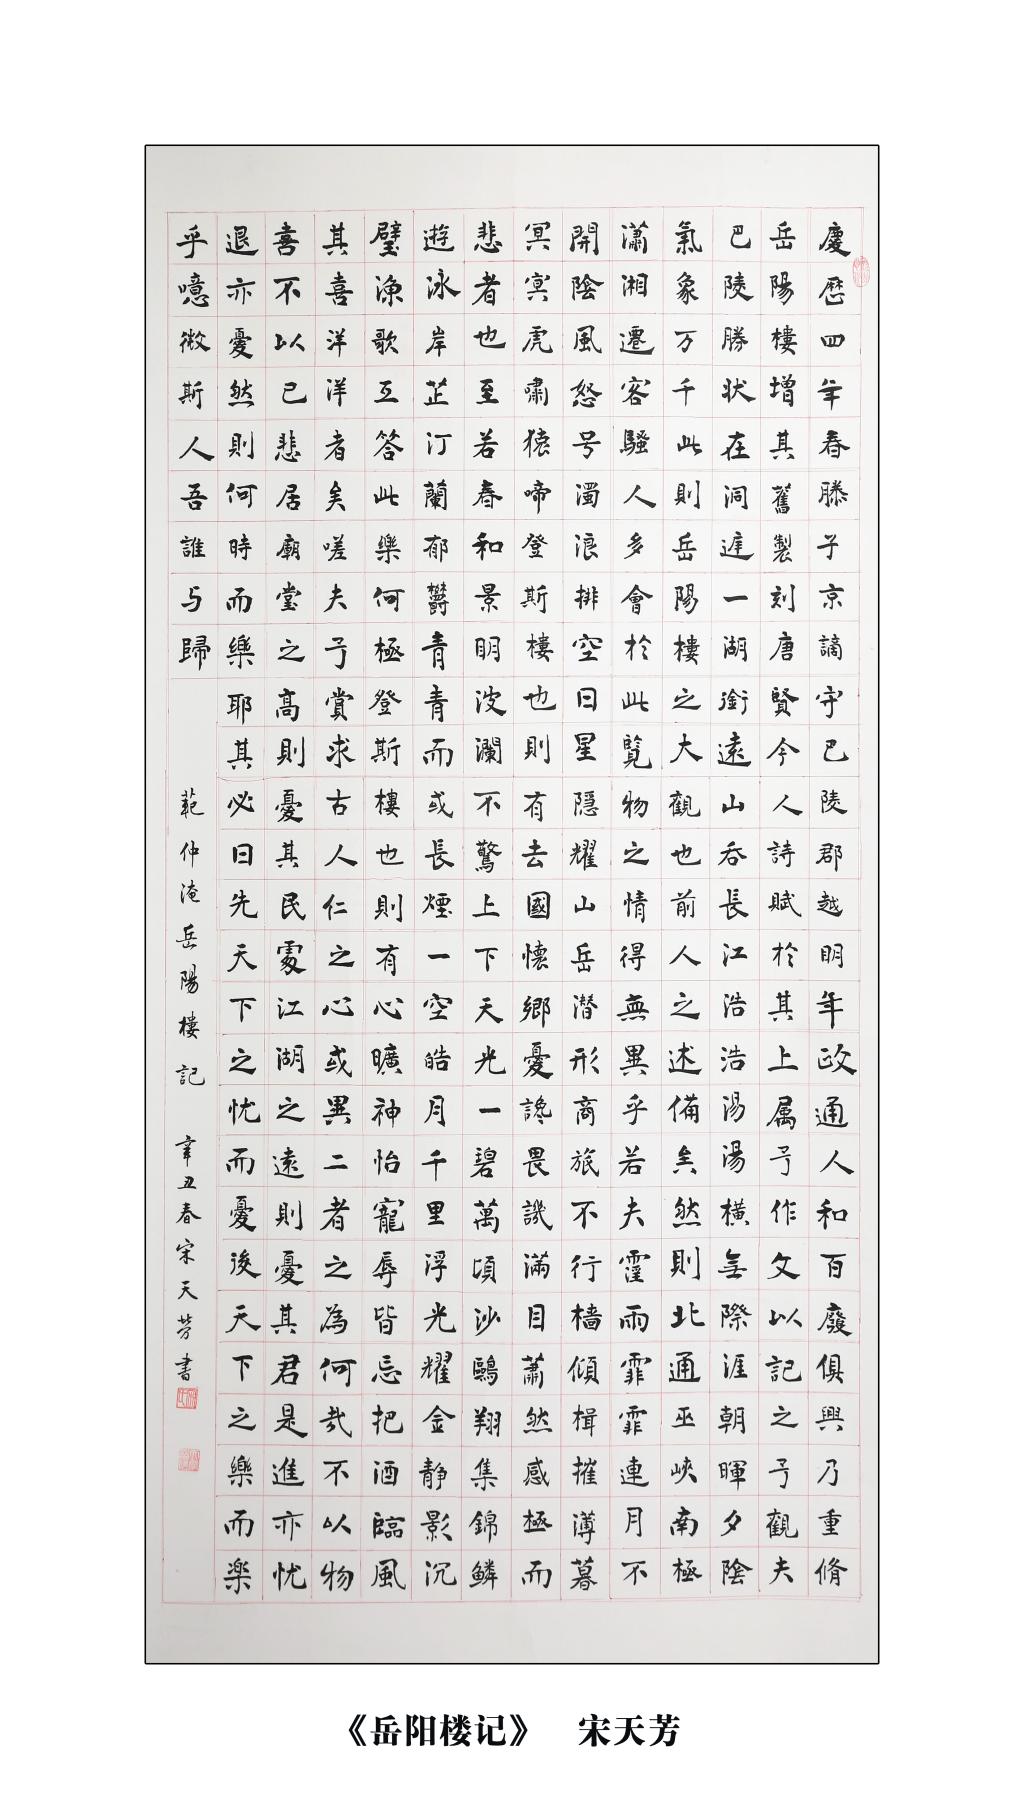 慶歷四年春滕子京謫守巴陵郡越明年政通人和百廢俱興乃重脩
岳陽樓增其舊製刻唐賢今人詩賦於其上属予作文以記之予觀夫
巴陵勝状在洞庭一湖銜遠山吞長江浩浩湯湯横無際涯朝暉夕陰
氣象万千此則岳陽樓之大觀也前人之述備矣然則北通巫峽南極
瀟湘遷客騷人多會於此覧物之情得無異乎若夫霪雨霏霏連月不
開陰風怒号濁浪排空日星隱耀山岳潜形商旅不行檣傾楫摧薄暮
冥冥虎嘯猿啼登斯樓也則有去國懷鄉憂讒畏譏滿目蕭然感極而
悲者也至若春和景明波瀾不驚上下天光一碧萬頃沙鷗翔集錦鳞
遊泳岸芷汀蘭郁欝青青而或長煙一空皓月千里浮光耀金静影沉
璧漁歌互答此樂何極登斯樓也則有心曠神怡寵辱皆忘把酒臨風
其喜洋洋者矣嗟夫予賞求古人仁之心或異二者之為何哉不以物
喜不以己悲居廟堂之高則憂其民處江湖之遠則憂其君是進亦忧
退亦憂然則何時而樂耶其必曰先天下之忧而憂後天下之樂而楽
乎噫微斯人吾誰与歸
範仲淹岳陽樓記 辛丑春宋天芳書
《岳阳楼记》 宋天芳